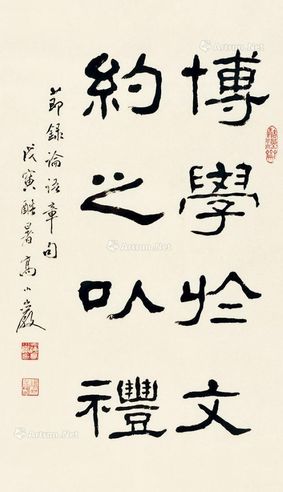 博學於文
約之以禮
節錄論語章句
戊寅酷暑高小巖
Artsmon.Net
Artsmon.Net
Artsmon.Net